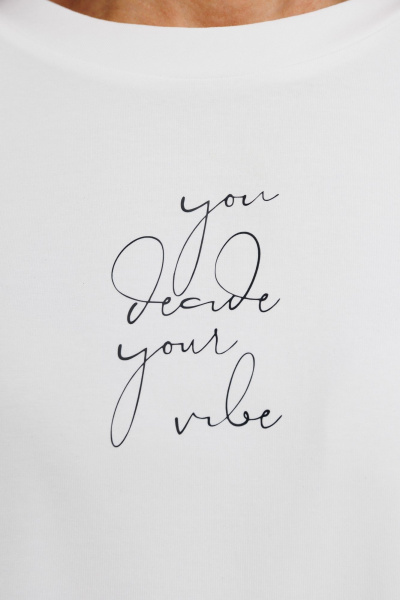 you
decide
your
vibe